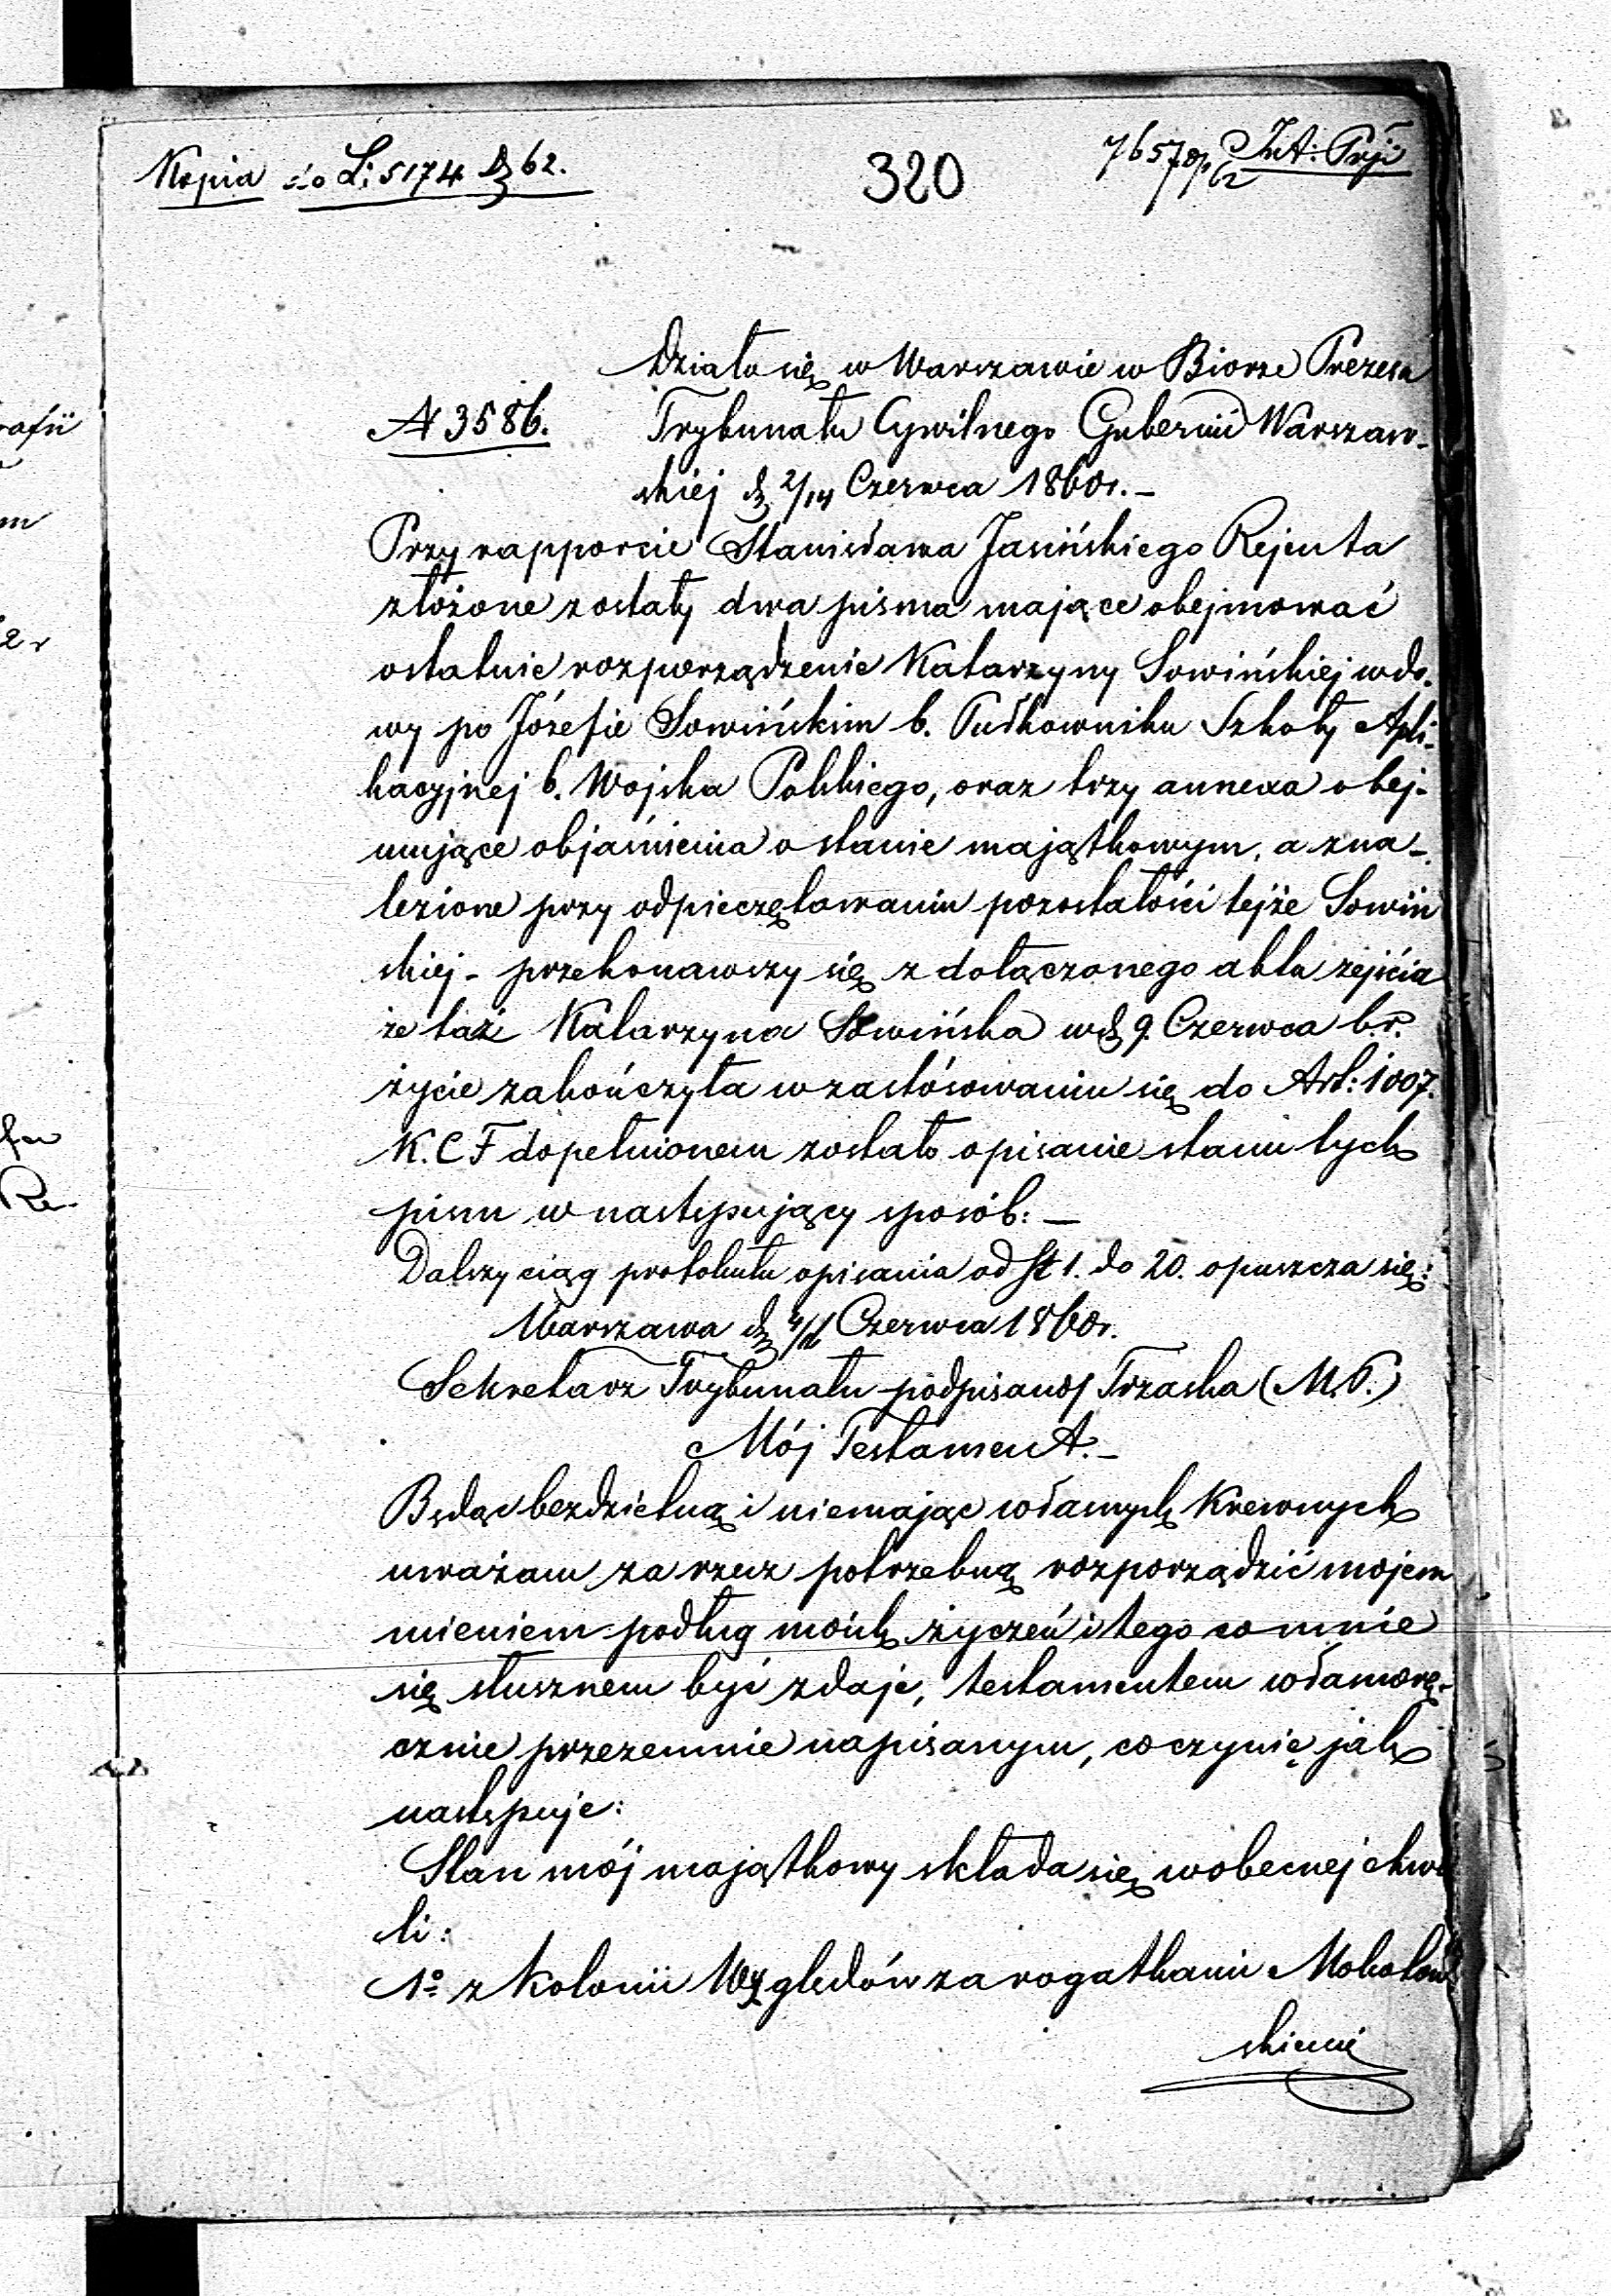 Kopia do L: 5174 D 62.
320
7657 62 Int: Pryj
Działo się w Warszawie w Biorze Prezesa
N 3586.
Trybunału Cywilnego Gubernii Warszaw-
skiej d 2/14 Czerwca 1860r.—
Przy rapporcie Stanisława Jasińskiego Rejenta
złożone zostały dwa pisma mające obejmować
ostatnie rozporządzenie Katarzyny Sowińskiej wdo-
wy po Józefie Sowińskim b. Pułkowniku Szkoły Apli-
kacyjnej b. Wojska Polskiego, oraz trzy annexa obej-
mujące objaśnienia o stanie majątkowym, a zna-
lezione przy odpieczętowaniu pozostałości tejże Sowiń
skiej - przekonawszy się z dołączonego akta zejścia
że taż Katarzyna Sowińska w d 9. Czerwca b.r.
życie zakończyła w zastósowaniu się do Art: 1007.
K.C.F dopełnionem zostało opisanie stanu tych
pism w następujący sposób: —
Dalszy ciąg protokułu opisania od St 1. do 20. opuszcza się:
Warszawa d 4/16 Czerwca 1860r.
Sekretarz Trybunału podpisano/ Trzaska (M.P.)
Mój Testament.—
Będąc bezdzietną i niemając własnych Krewnych
uważam za rzecz potrzebną rozporządzić mojem
mieniem podług moich życzeń i tego co mnie
się słusznem być zdaje, testamentem własnorę-
cznie przezemnie napisanym, co czynię jak
następuje:
Stan mój majątkowy składa się w obecnej chwi
li:
1º z Kolonii Wyględów za rogatkami Mokotow
skiemi
rafii
m
2 r
Re-